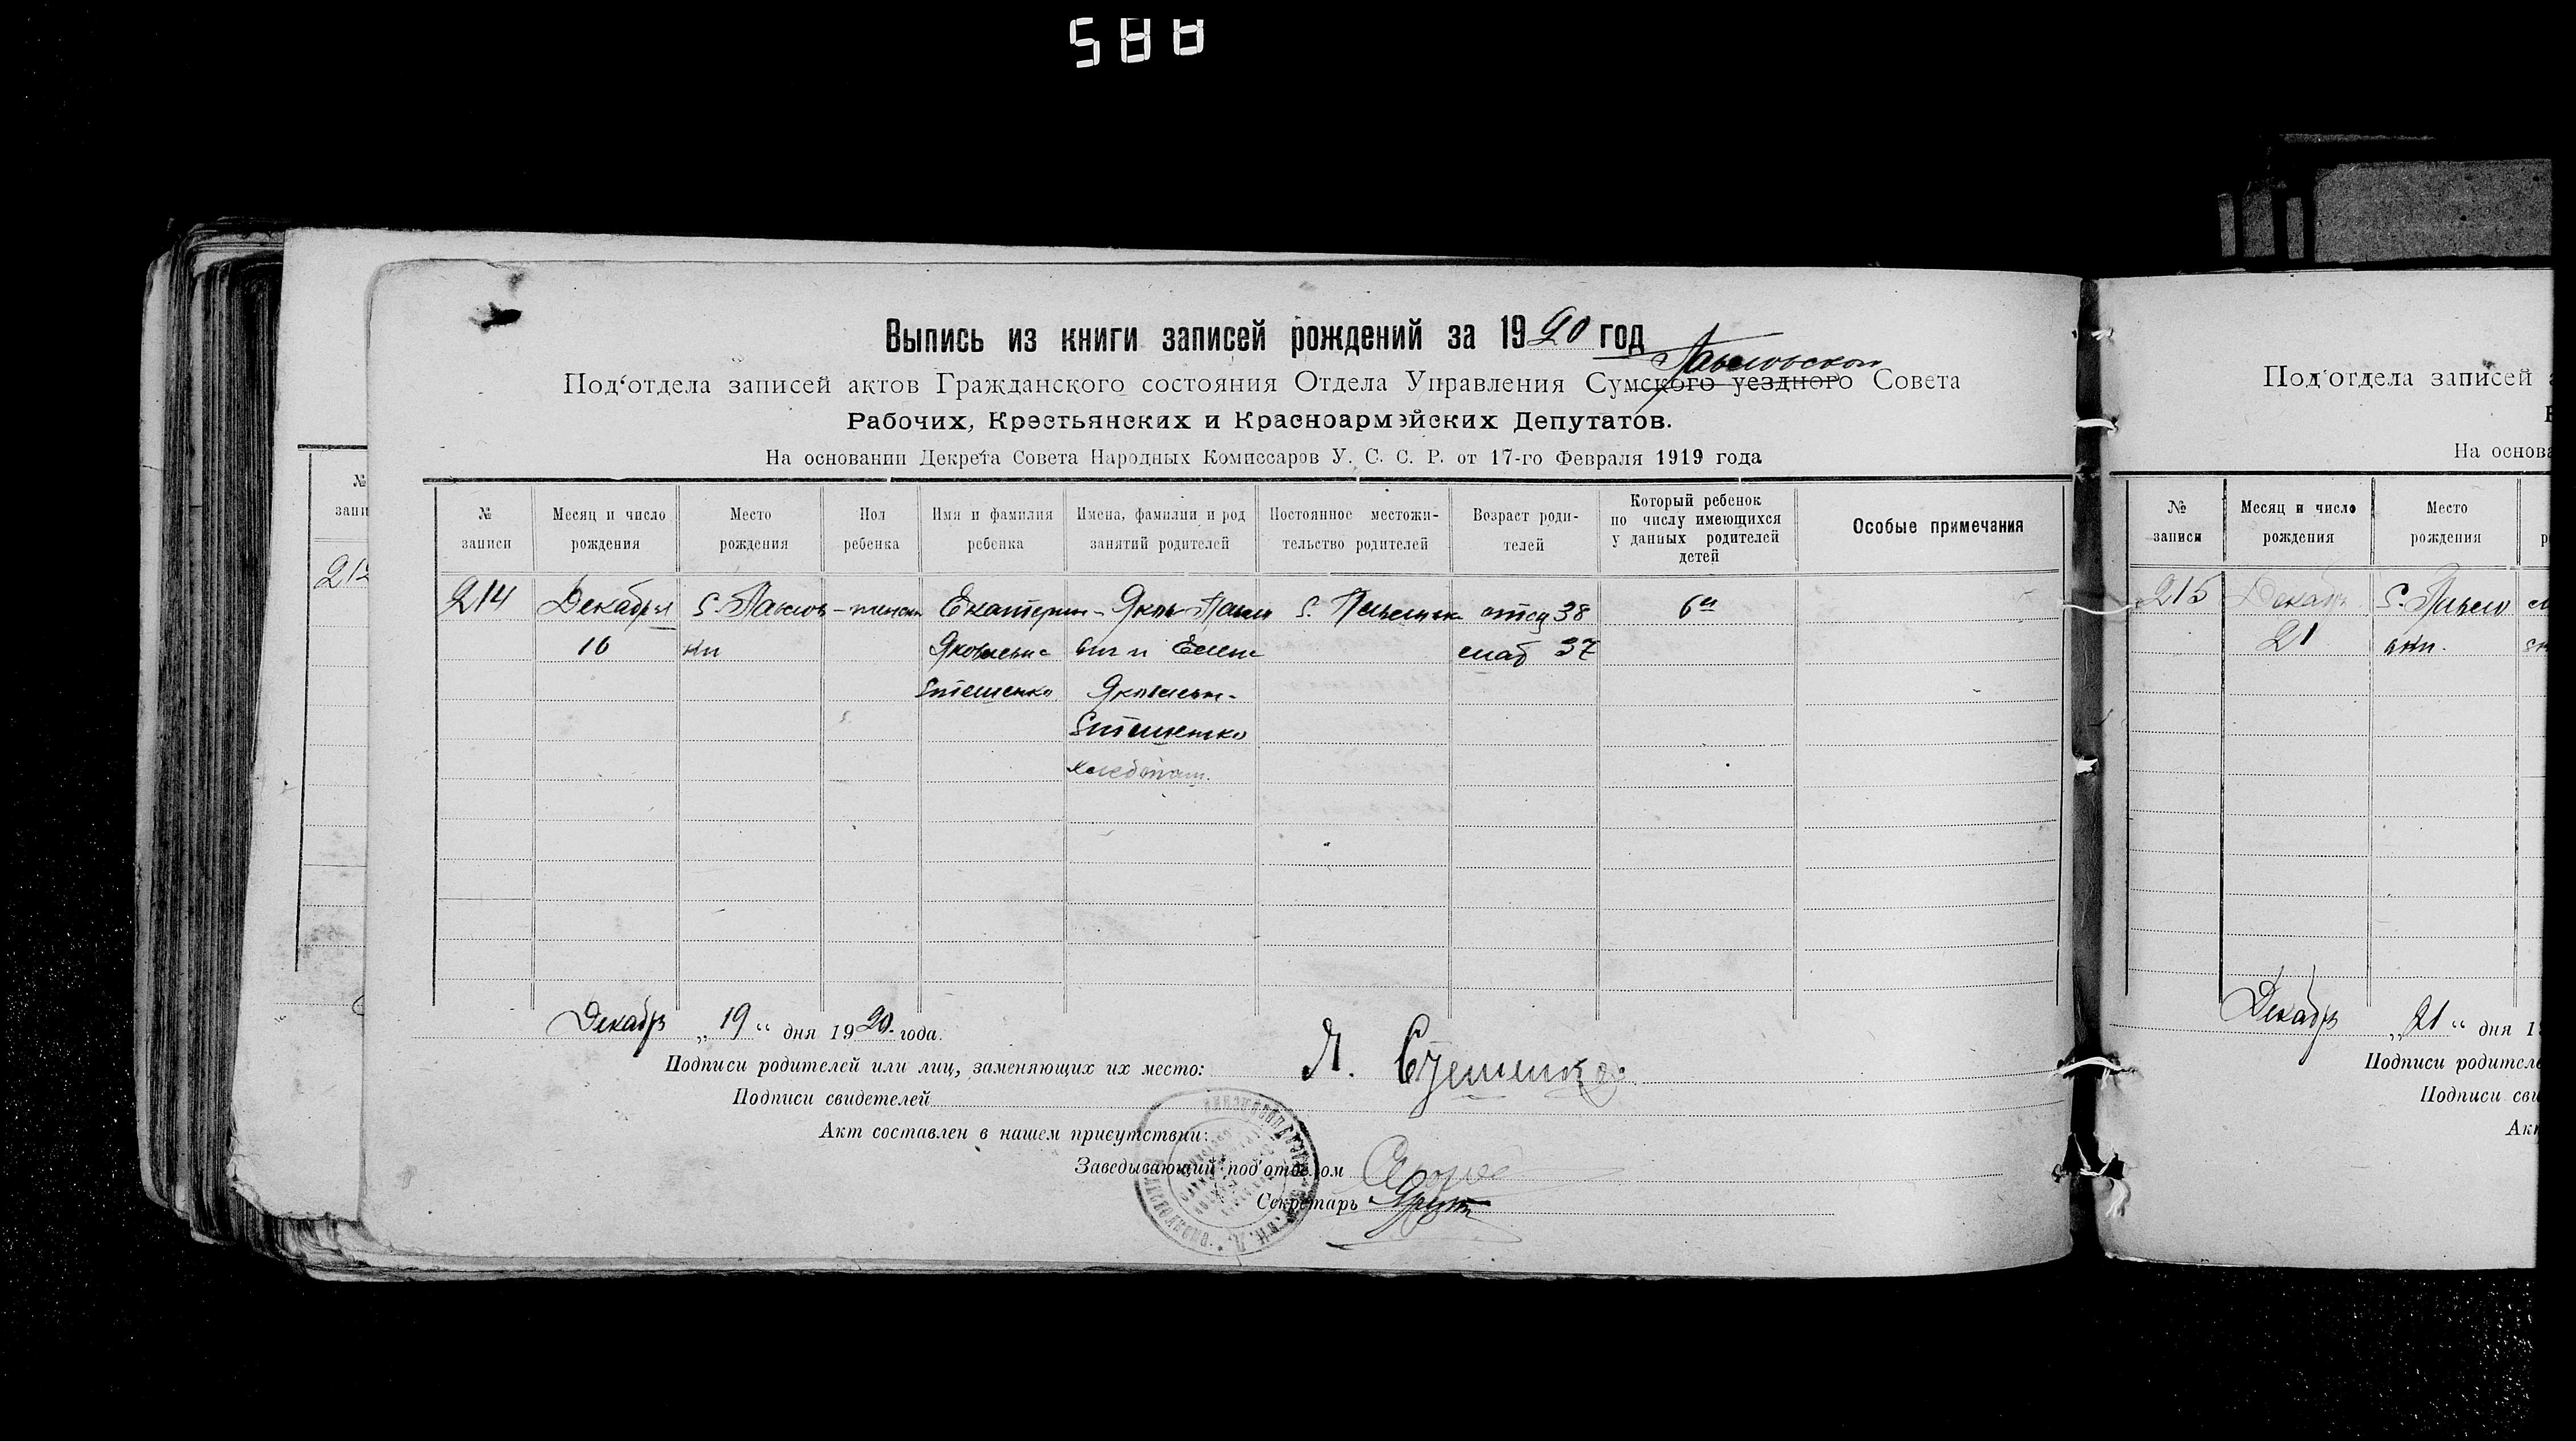 588
Выпись из книги записей рождений за 1920 год
Павловского
Под‘отдела записей актов Гражданского состояния Отдела Управления Сумского уездного Совета
Рабочих, Крестьянских и Красноармейских Депутатов.
На основании Декрета Совета Народных Комиссаров У. С. С. Р. от 17-го Февраля 1919 года
№ записи
Месяц и число рождения
Место рождения
Пол ребенка
Имя и фамилия ребенка
Имена, фамилии и род занятий родителей
Постоянное местожительство родителей
Возраст родителей
Который ребенок по числу имеющихся у данных родителей детей
Особые примечания
214 Декабря С. Павлов- женск Екатерин- Яков Павл С. Павловка отцу 38 6й
16 ки Яковлевна вич и Елена 37
Стешенко Яковлевн-
Стешенко
хлебопаш.
Декабр „19“ дня 1920 года.
Подписи родителей или лиц, заменяющих их место: Я. Стешенко
Подписи свидетелей
Акт составлен в нашем присутствии:
Заведывающий под‘отделом
Секретарь
№
запи
212
Под‘отдела записей
На основа
№ записи
Месяц и число рождения
Место рождения
215 Декабр С. Павло
21 вки.
Декабр „21“ дня 1
Подписи родителе
Подписи сви
Ак